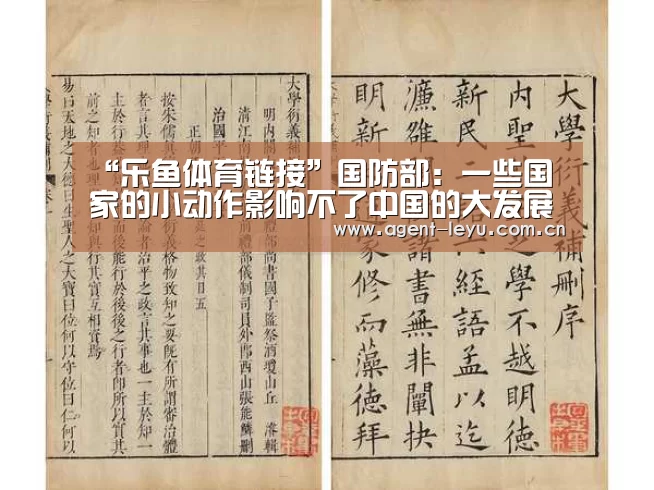 “乐鱼体育链接”国防部：一些国
家的小动作影响不了中国的大发展
www.agent-leyu.com.cn
大學衍義補刪序
內聖之學不越明德
新民二六經語孟以迄
濂雒諸書無非闡抉
明新家修而藻德拜
大學衍義補
明內閣部尚書國子監祭酒瓊山丘 濬輯
清江南前禮部儀制司員外郎西山張能鱗刪
治國平
正朝
政其目五
按朱儒真衍義格物致知之要既有所謂審治體
者言其理者治平之政言其事也一主於知一
主於行蓋後之行者卽所以實其
前之知者也理與事互相資焉
易曰天地之大德曰生聖人之大寶曰位何以守位曰仁何以